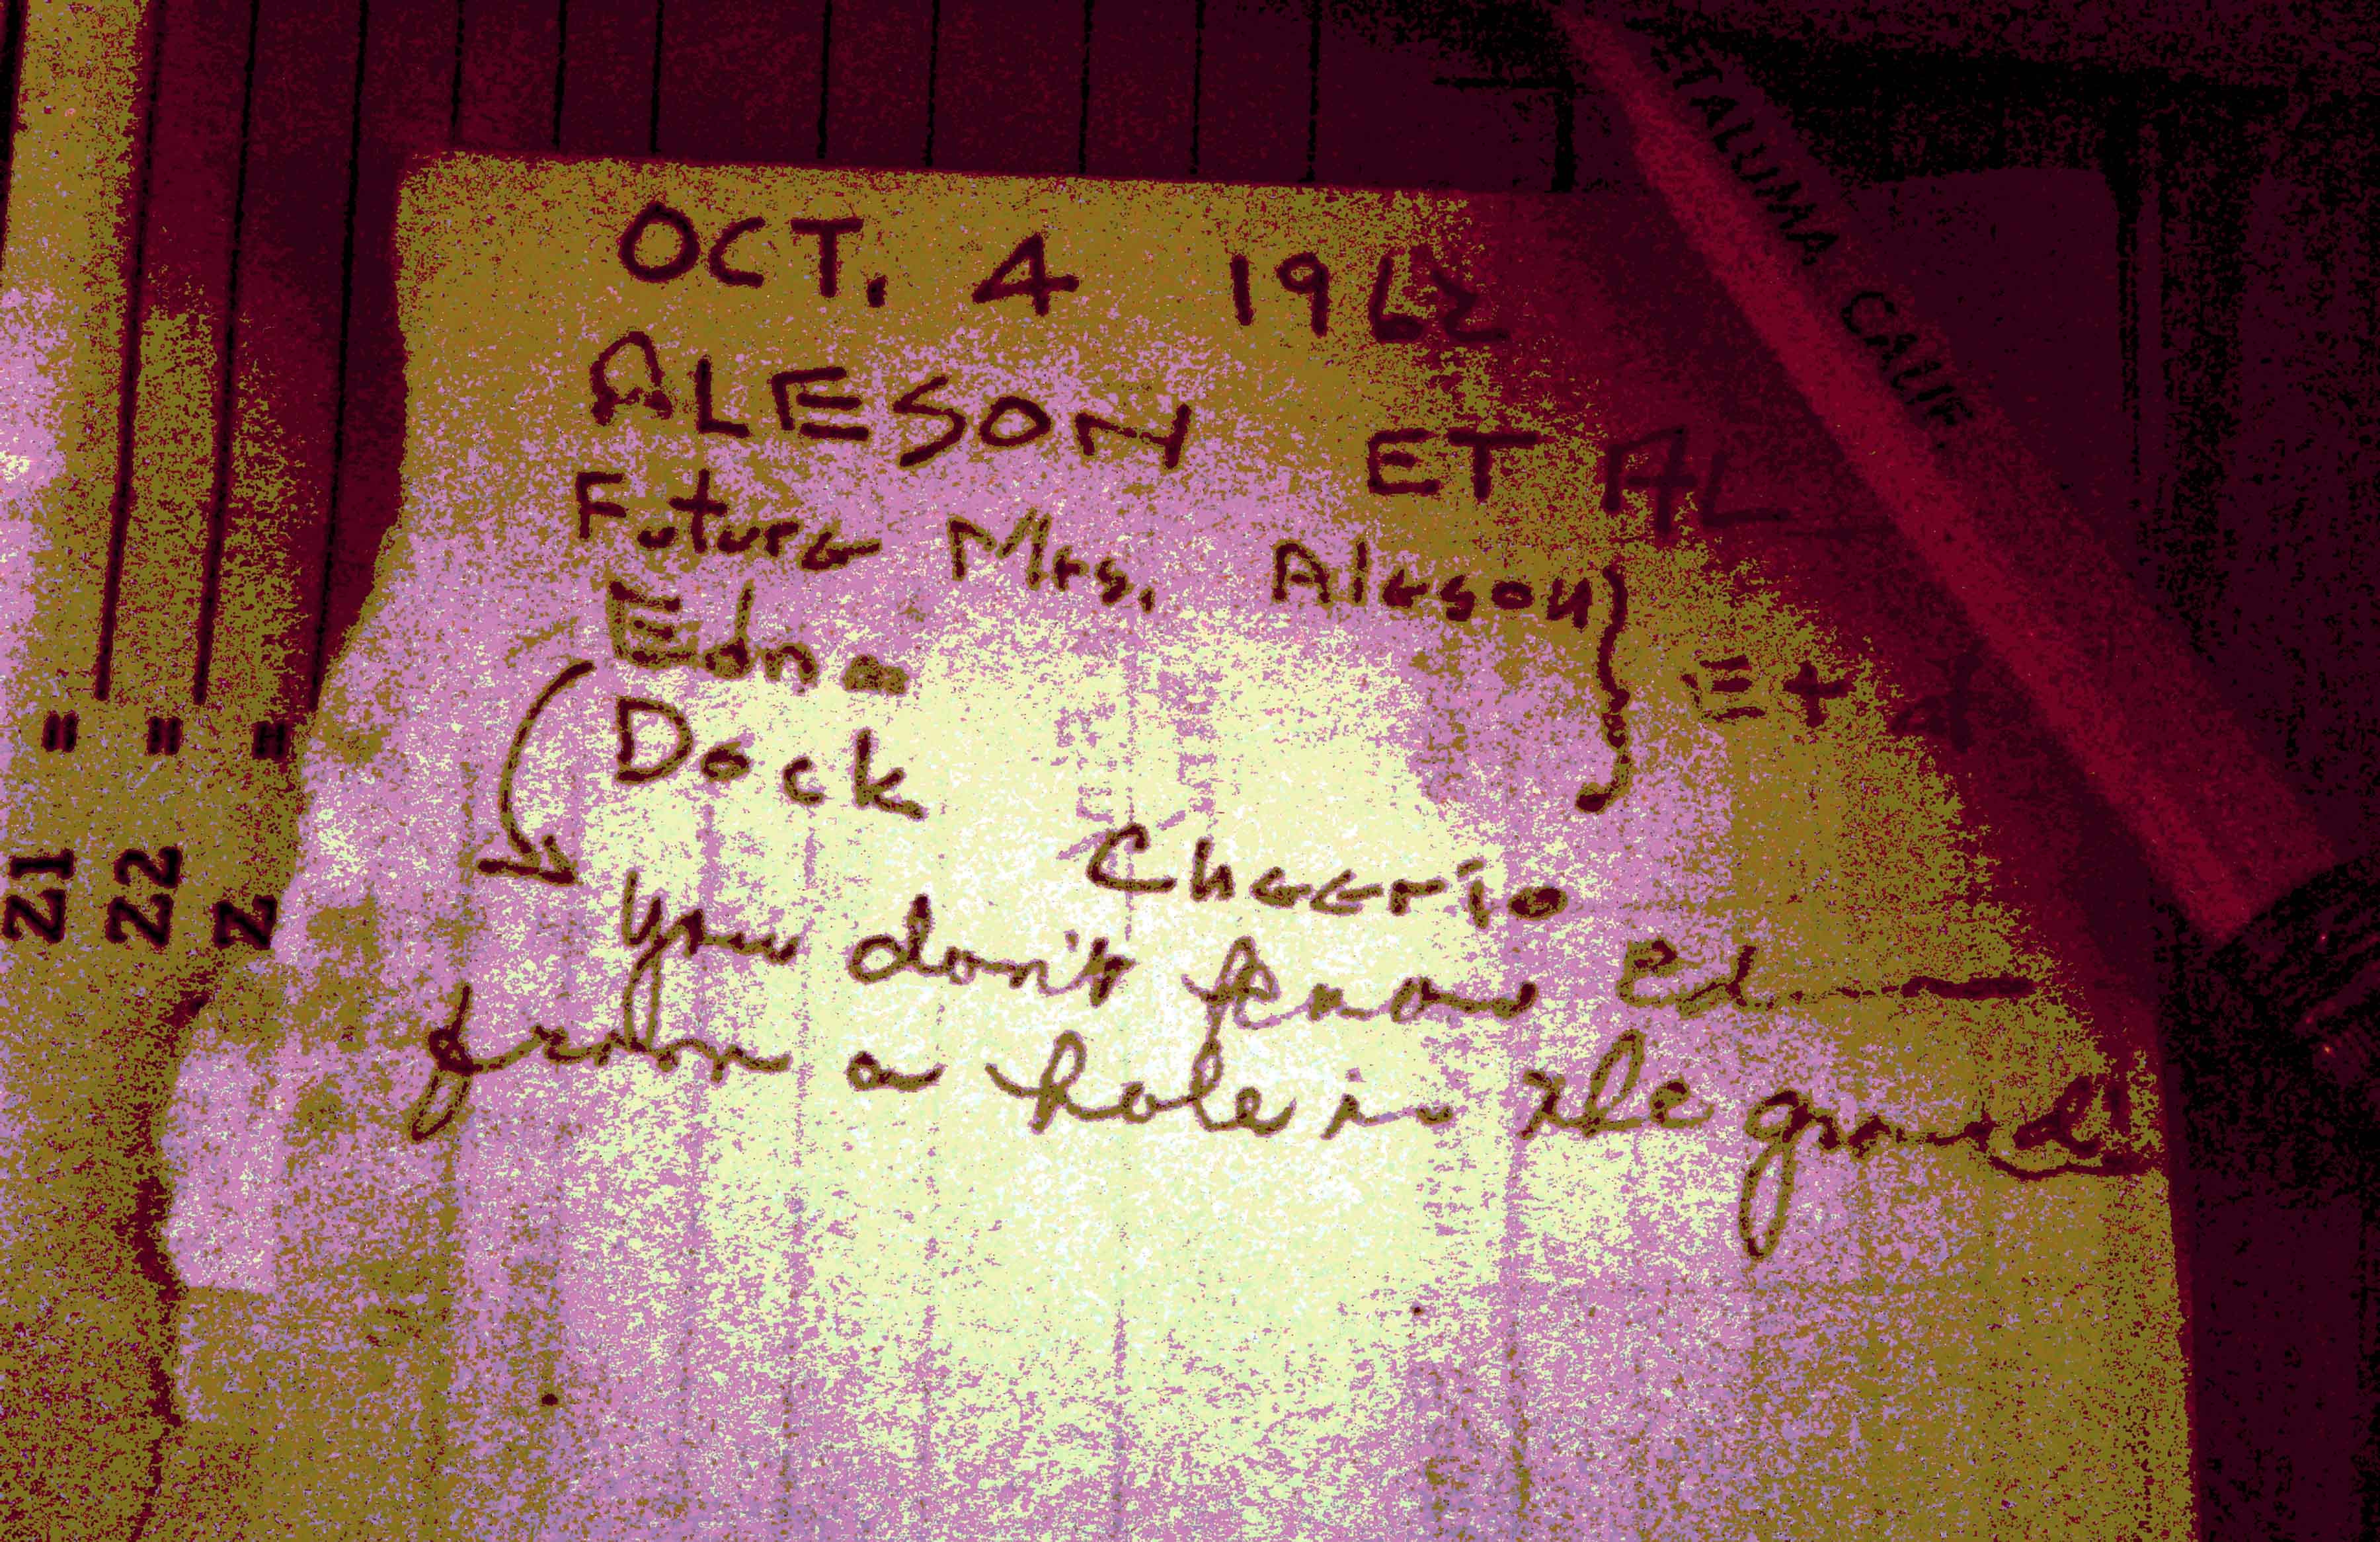 OCT. 4 1962
ALESON ET AL
Future Mrs. Aleson
Edna
Dock
Et
Cheerio
you don't know
from a hole in the ground"
ETALUMA CALIF.
21 "
22 "
2 "